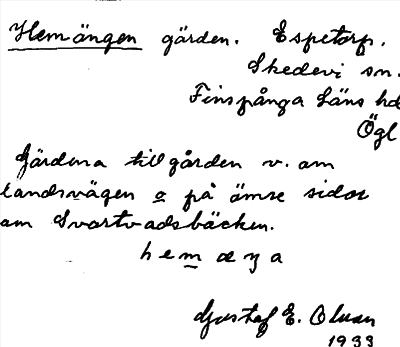 Hemängen gärden. Espetorp.
Skedevi sn.
Finspånga läns hd
Ögl
Gärdena till gården v. om
landsvägen o på ömse sidor
om Svartvadsbäcken.
Gustaf E. Olsson
1933